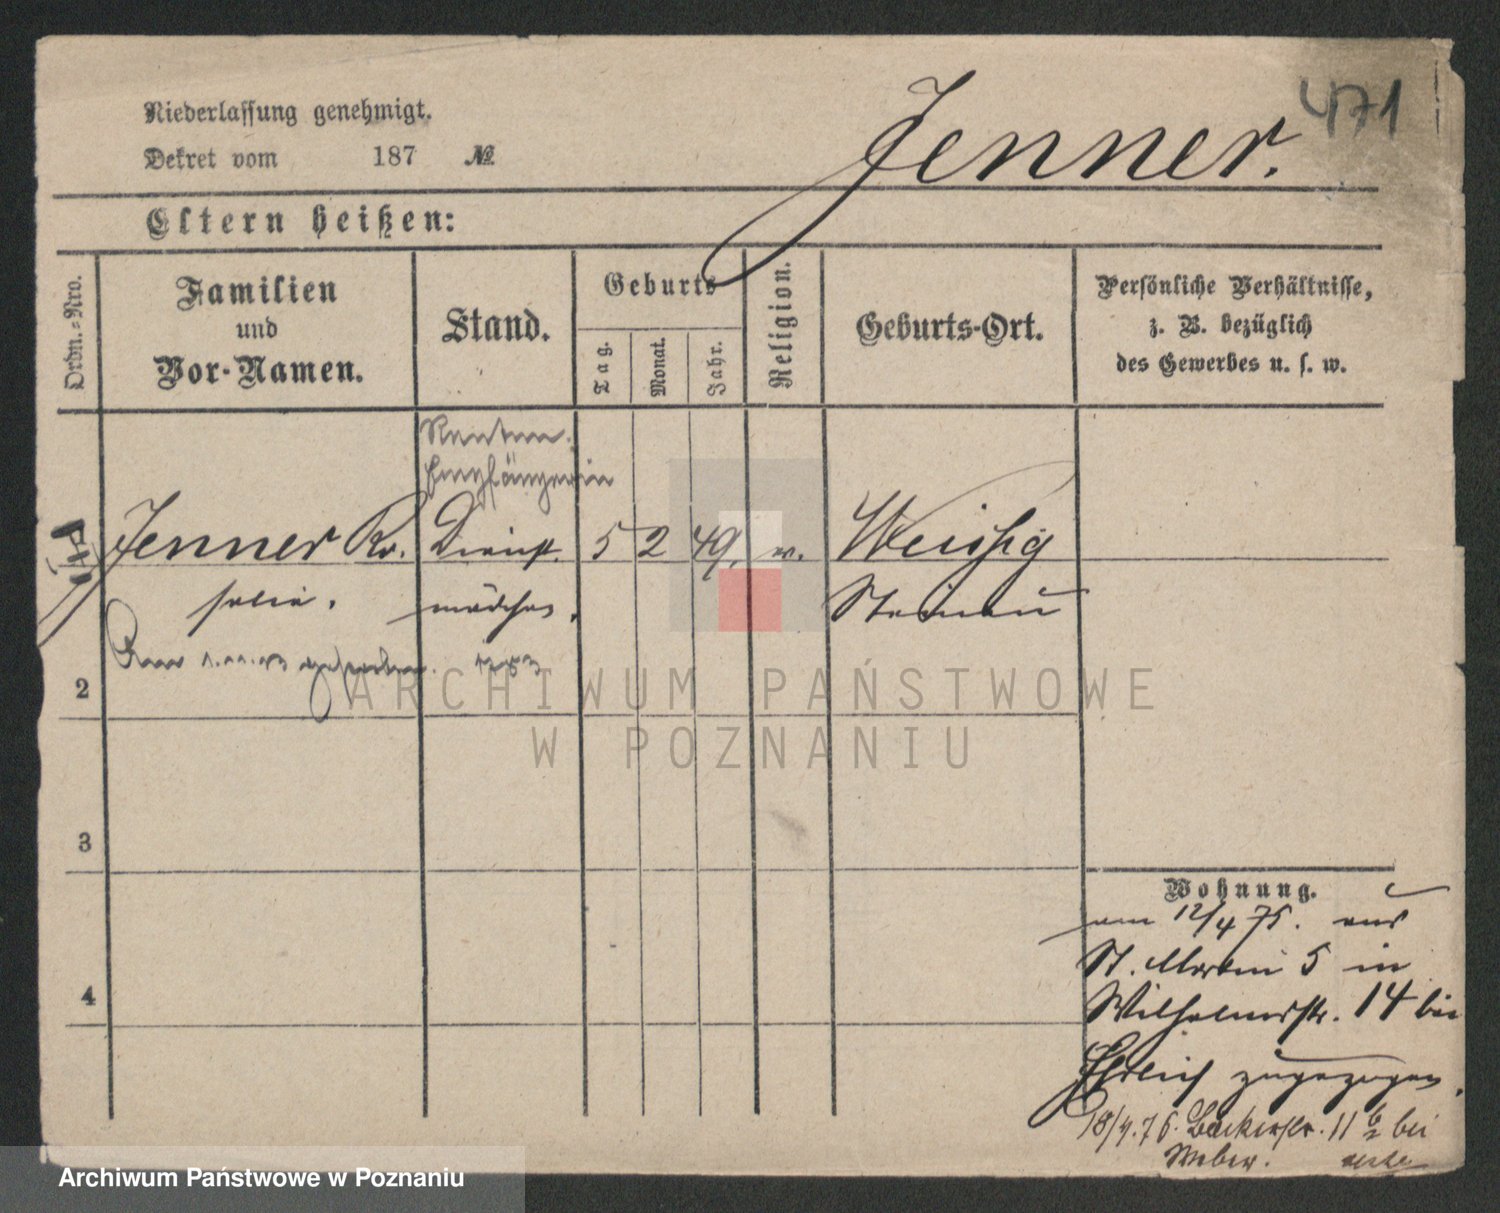 471
Niederlassung genehmigt.
Dekret vom 187 №
Jenner.
Eltern heißen:
Ordn.=Nro.
Familien
und
Vor-Namen.
Stand.
Geburts
Tag.
Monat.
Jahr.
Religion.
Geburts-Ort.
Persönliche Verhältnisse,
z. B. bezüglich
des Gewerbes u. s. w.
Renten
Empfängerin
Jenner Ro. Dienst 5 2 49. Weissig
salie. mädchen. Steinau
gestorben. 1753
2
3
4
Wohnung.
am 12/4 75. aus
St. Martin 5 in
Wilhelmstr. 14 bei
Ehrlich zugezogen.
18/4.76. Bäckerstr. 11 bei
Weber.
ARCHIWUM PAŃSTWOWE
W POZNANIU
Archiwum Państwowe w Poznaniu